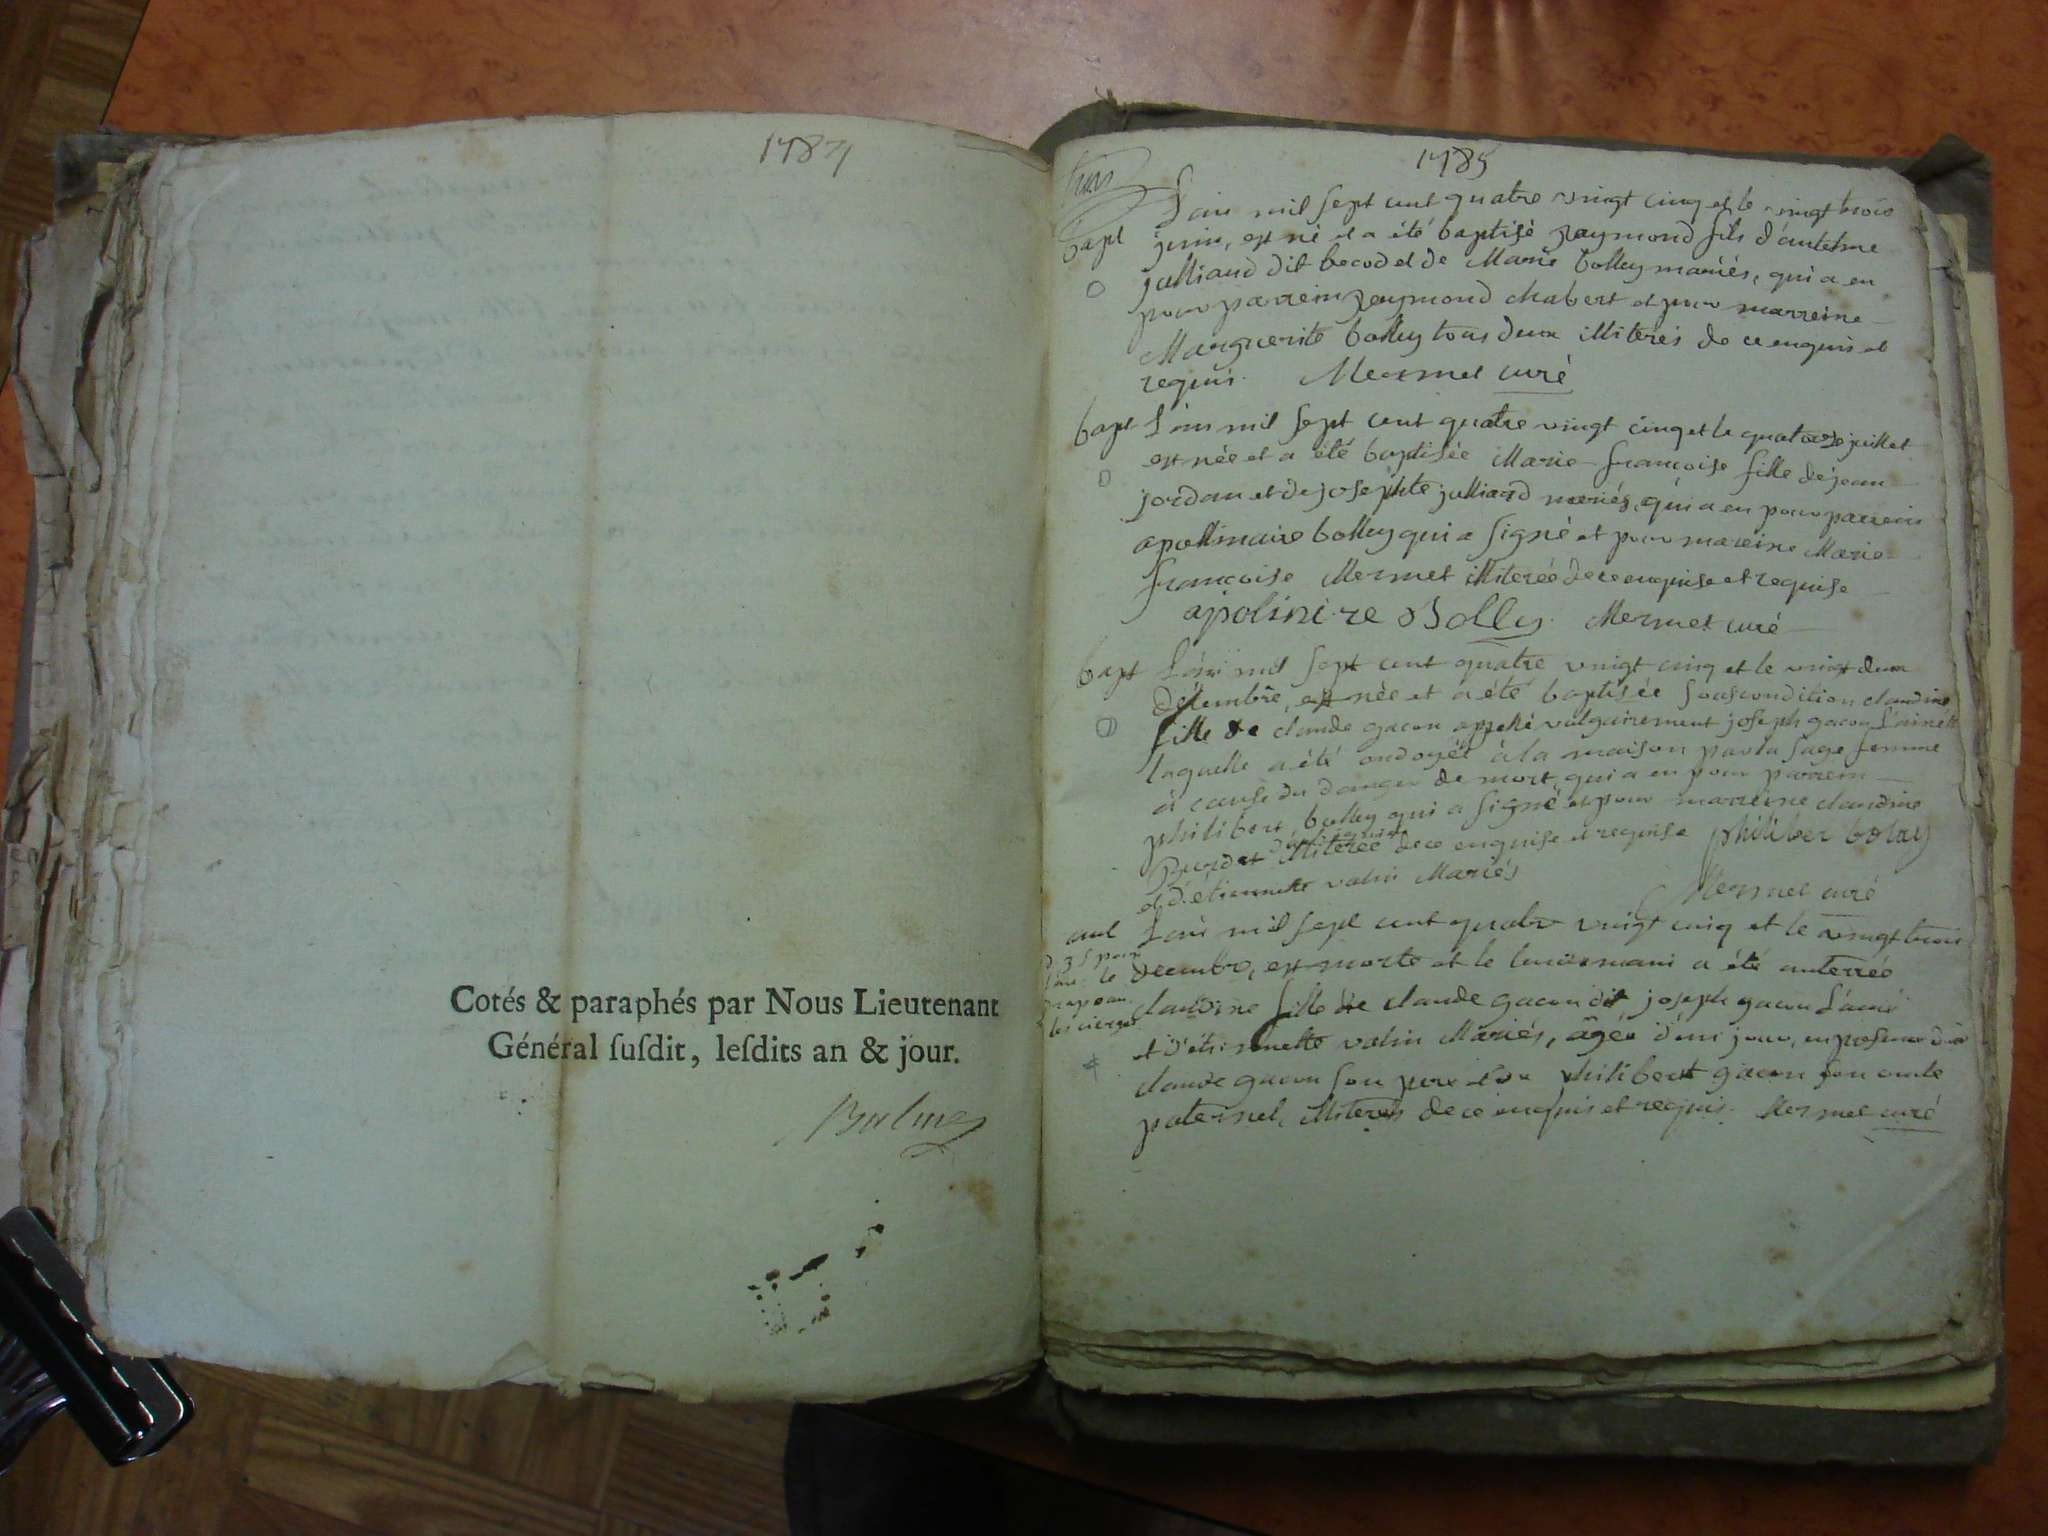 1784
Cotés & paraphés par Nous Lieutenant
Général ſuſdit, leſdits an & jour.
1785
L'an mil sept cent quatre vingt cinq et le vingt trois
bapt juin, est né et a été baptisé Raymond fils d'antelme
julliand dit becod et de Marie bolley mariés, qui a eu
pour parrein Raymond chabert et pour marreine
Marguerite bolley tous deux illiterés de ce enquis et
requis. Mermet curé
bapt L'an mil sept cent quatre vingt cinq et le quatorze juillet
est née et a été baptisée Marie françoise fille de jean
jordan et de josephte julliand mariés, qui a eu pour parrein
apollinaire bolley qui a signé et pour mareine Marie
françoise Mermet illiterée de ce enquise et requise
apolinire Bolley Mermet curé
bapt L'an mil sept cent quatre vingt cinq et le vingt deux
décembre, est née et a été baptisée sous condition claudine
fille de claude gacon appellé vulgairement joseph gacon L'ainé
laquelle a été ondoyée à la maison par la sage femme
à cause du danger de mort, qui a eu pour parrein
philibert bolley qui a signé et pour marreine claudine
illiterée de ce enquise et requise philiber boley
et d'étiennette valin Mariés
Mermet curé
L'an mil sept cent quatre vingt cinq et le vingt trois
decembre, est morte et le lendemain a été enterrée
claudine fille de claude gacon dit joseph gacon L'ainé
et d'etiennette valin Mariés, âgée d'un jour, en presence de
claude gacon son pere et de philibert gacon son oncle
paternel, illiterés de ce enquis et requis. Mermet curé